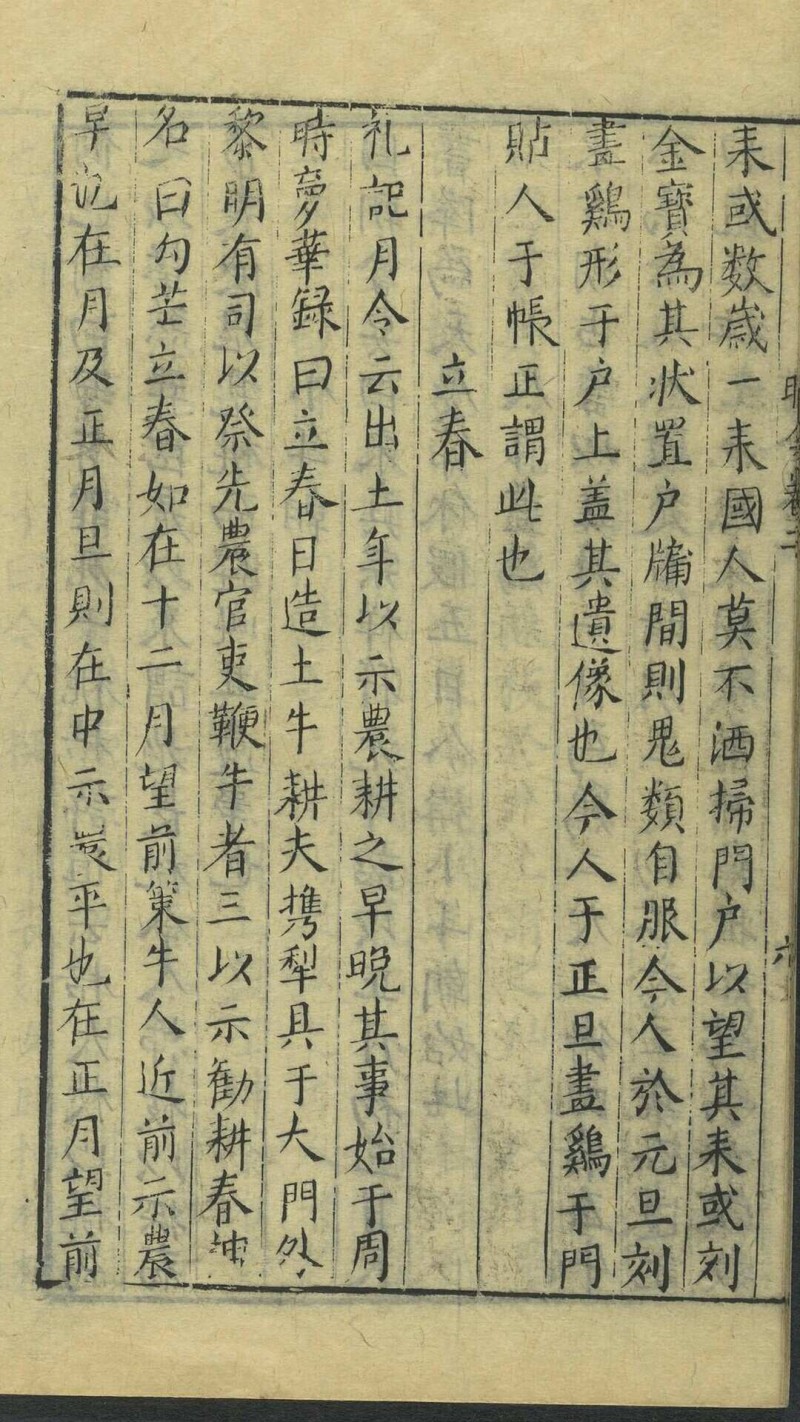 来或数歳一来國人莫不洒掃門户以望其来或刻
金寳為其状置户牗間則鬼類自服今人於元旦刻
畫鷄形于户上盖其遺像也今人于正旦畫鷄于門
貼人于帳正謂此也
立春
礼記月令云出土牛以示農耕之早晚其事始于周
時夢華録曰立春日造土牛耕夫携犁具于大門外
黎明有司以祭先農官吏鞭牛者三以示勸耕春神
名曰勾芒立春如在十二月望前策牛人近前示農
早也在月及正月旦則在中示農平也在正月望前